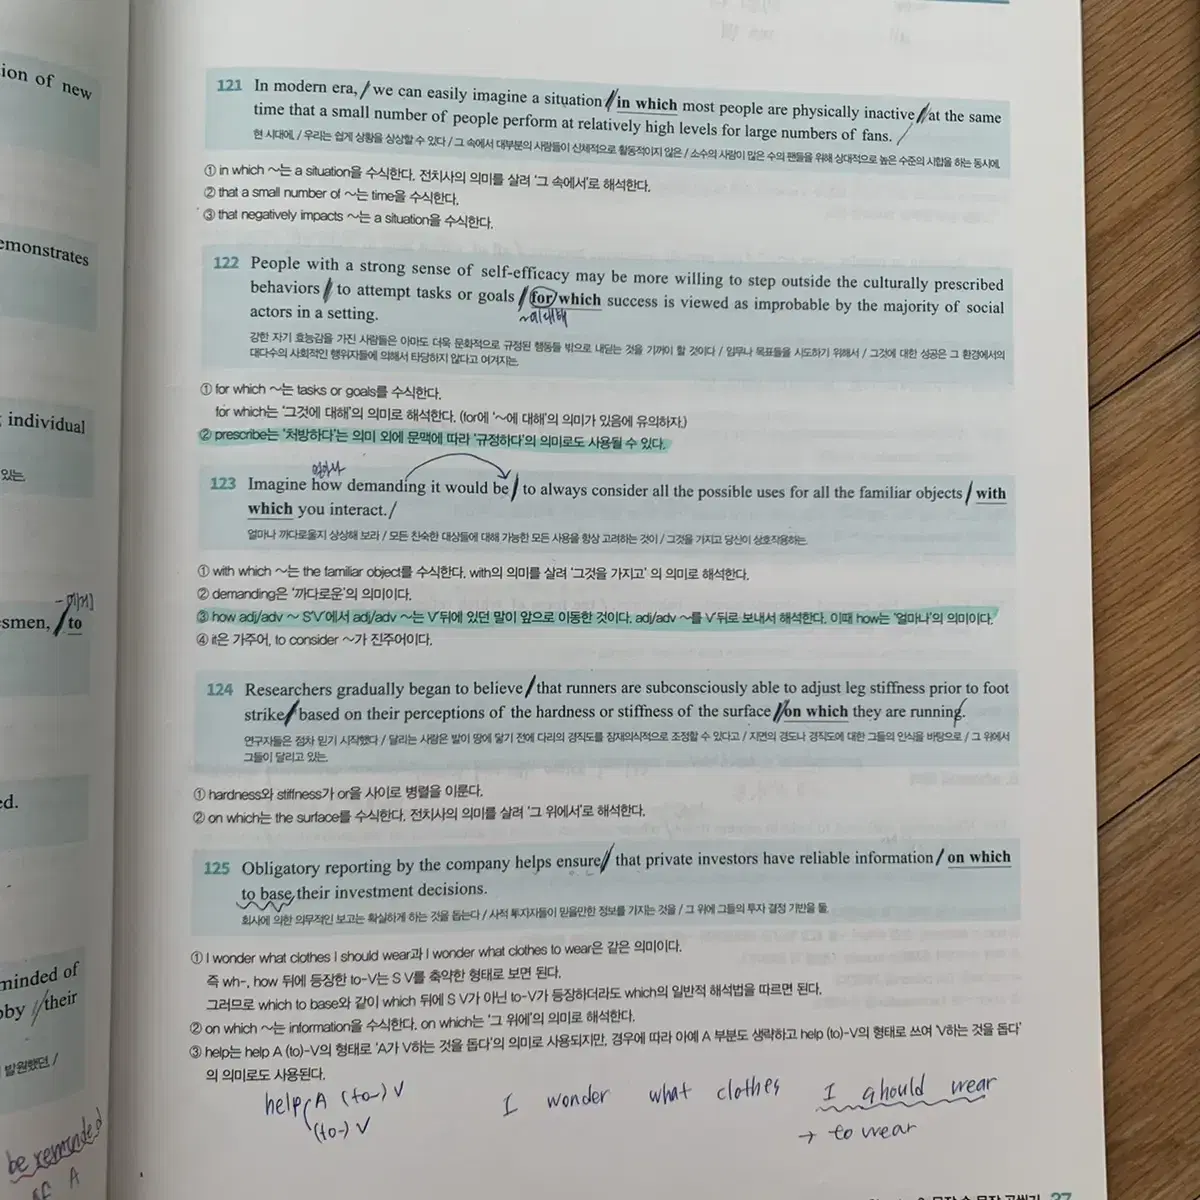 ion of new
emonstrates
individual
있는.
smen, to
ed.
minded of
bby their
발원했던. /
be reminded
of A
121 In modern era, / we can easily imagine a situation // in which most people are physically inactive // at the same
time that a small number of people perform at relatively high levels for large numbers of fans. /
현 시대에, / 우리는 쉽게 상황을 상상할 수 있다 / 그 속에서 대부분의 사람들이 신체적으로 활동적이지 않은 / 소수의 사람이 많은 수의 팬들을 위해 상대적으로 높은 수준의 시합을 하는 동시에.
① in which ~는 a situation을 수식한다. 전치사의 의미를 살려 '그 속에서'로 해석한다.
② that a small number of ~는 time을 수식한다.
③ that negatively impacts ~는 a situation을 수식한다.
122 People with a strong sense of self-efficacy may be more willing to step outside the culturally prescribed
behaviors / to attempt tasks or goals / for which success is viewed as improbable by the majority of social
actors in a setting.
~에 대해
강한 자기 효능감을 가진 사람들은 아마도 더욱 문화적으로 규정된 행동들 밖으로 내딛는 것을 기꺼이 할 것이다 / 임무나 목표들을 시도하기 위해서 / 그것에 대한 성공은 그 환경에서의
대다수의 사회적인 행위자들에 의해서 타당하지 않다고 여겨지는.
① for which ~는 tasks or goals를 수식한다.
for which는 '그것에 대해'의 의미로 해석한다. (for에 '~에 대해'의 의미가 있음에 유의하자.)
② prescribe는 '처방하다'는 의미 외에 문맥에 따라 '규정하다'의 의미로도 사용될 수 있다.
얼마나
123 Imagine how demanding it would be / to always consider all the possible uses for all the familiar objects / with
which you interact. /
얼마나 까다로울지 상상해 보라 / 모든 친숙한 대상들에 대해 가능한 모든 사용을 항상 고려하는 것이 / 그것을 가지고 당신이 상호작용하는.
① with which ~는 the familiar object를 수식한다. with의 의미를 살려 '그것을 가지고' 의 의미로 해석한다.
② demanding은 '까다로운'의 의미이다.
③ how adj/adv ~ S'V'에서 adj/adv ~는 V'뒤에 있던 말이 앞으로 이동한 것이다. adj/adv ~를 V'뒤로 보내서 해석한다. 이때 how는 '얼마나'의 의미이다.
④ it은 가주어, to consider ~가 진주어이다.
124 Researchers gradually began to believe / that runners are subconsciously able to adjust leg stiffness prior to foot
strike / based on their perceptions of the hardness or stiffness of the surface // on which they are running.
연구자들은 점차 믿기 시작했다 / 달리는 사람은 발이 땅에 닿기 전에 다리의 경직도를 잠재의식적으로 조정할 수 있다고 / 지면의 경도나 경직도에 대한 그들의 인식을 바탕으로 / 그 위에서
그들이 달리고 있는.
① hardness와 stiffness가 or을 사이로 병렬을 이룬다.
② on which는 the surface를 수식한다. 전치사의 의미를 살려 '그 위에서'로 해석한다.
125 Obligatory reporting by the company helps ensure // that private investors have reliable information / on which
to base their investment decisions.
회사에 의한 의무적인 보고는 확실하게 하는 것을 돕는다 / 사적 투자자들이 믿을만한 정보를 가지는 것을 / 그 위에 그들의 투자 결정 기반을 둘.
① I wonder what clothes I should wear과 I wonder what clothes to wear은 같은 의미이다.
즉 wh-, how 뒤에 등장한 to-V는 S V를 축약한 형태로 보면 된다.
그러므로 which to base와 같이 which 뒤에 S V가 아닌 to-V가 등장하더라도 which의 일반적 해석법을 따르면 된다.
② on which ~는 information을 수식한다. on which는 '그 위에'의 의미로 해석한다.
③ help는 help A (to)-V의 형태로 'A가 V하는 것을 돕다'의 의미로 사용되지만, 경우에 따라 아예 A 부분도 생략하고 help (to)-V의 형태로 쓰여 'V하는 것을 돕다'
의 의미로도 사용된다.
help A (to-) V
(to-) V
I wonder what clothes I should wear
→ to wear
37